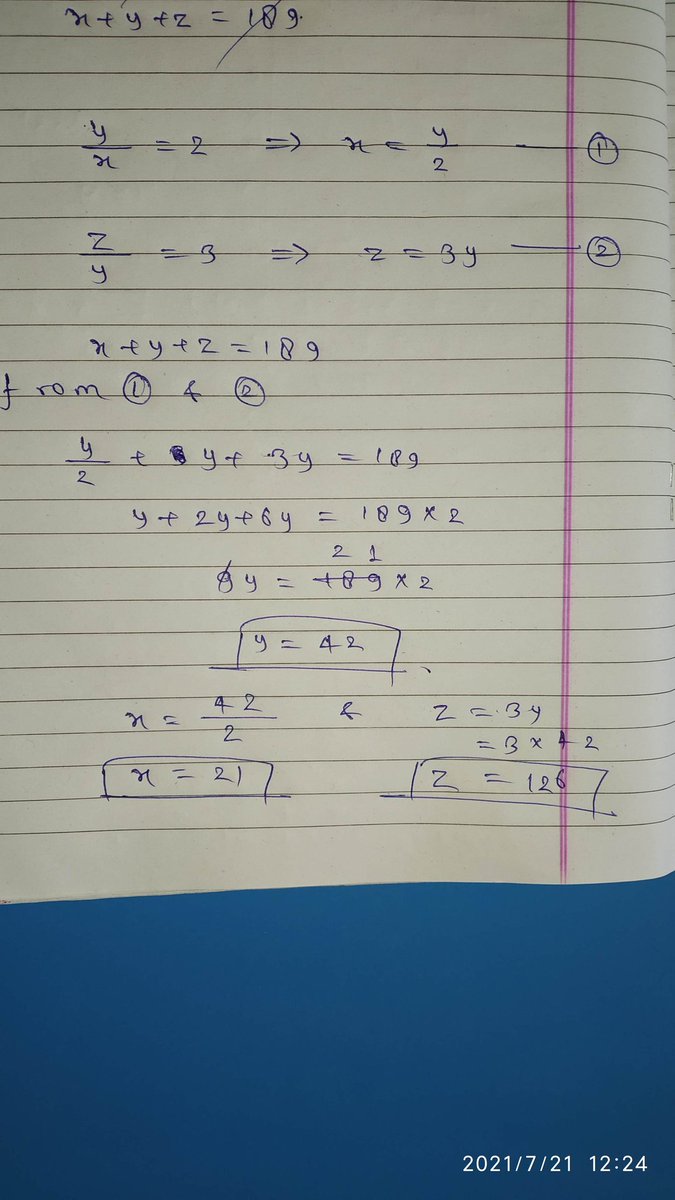 x + y + z = 189
y/x = 2 ⇒ x = y/2 — ①
z/y = 3 ⇒ z = 3y — ②
x + y + z = 189
from ① & ②
y/2 + y + 3y = 189
y + 2y + 6y = 189 × 2
21
9y = 189 × 2
y = 42
x = 42/2 & z = 3y
= 3 × 42
x = 21 z = 126
2021/7/21 12:24